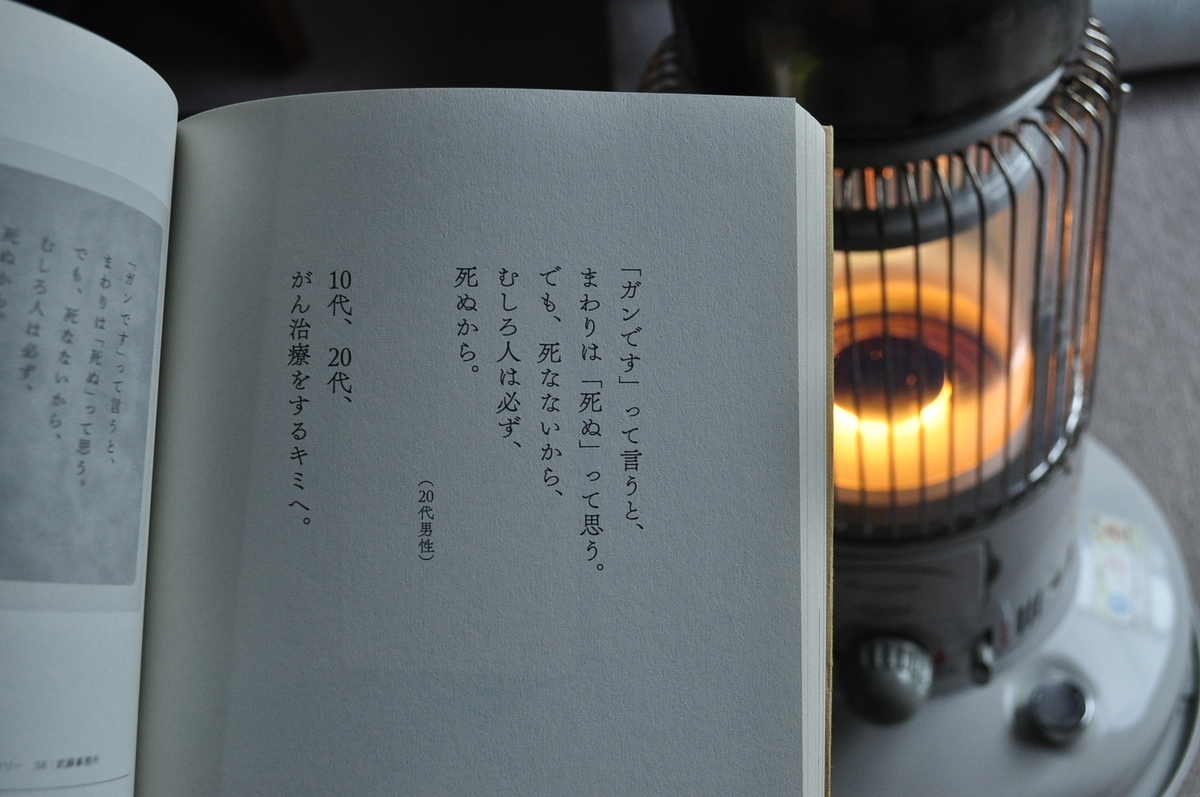 「ガンです」って言うと、
まわりは「死ぬ」って思う。
でも、死なないから、
むしろ人は必ず、
死ぬから。
（20代男性）
10代、20代、
がん治療をするキミへ。
「ガンです」って言うと、
まわりは「死ぬ」って思う。
でも、死なないから、
むしろ人は必ず、
死ぬから